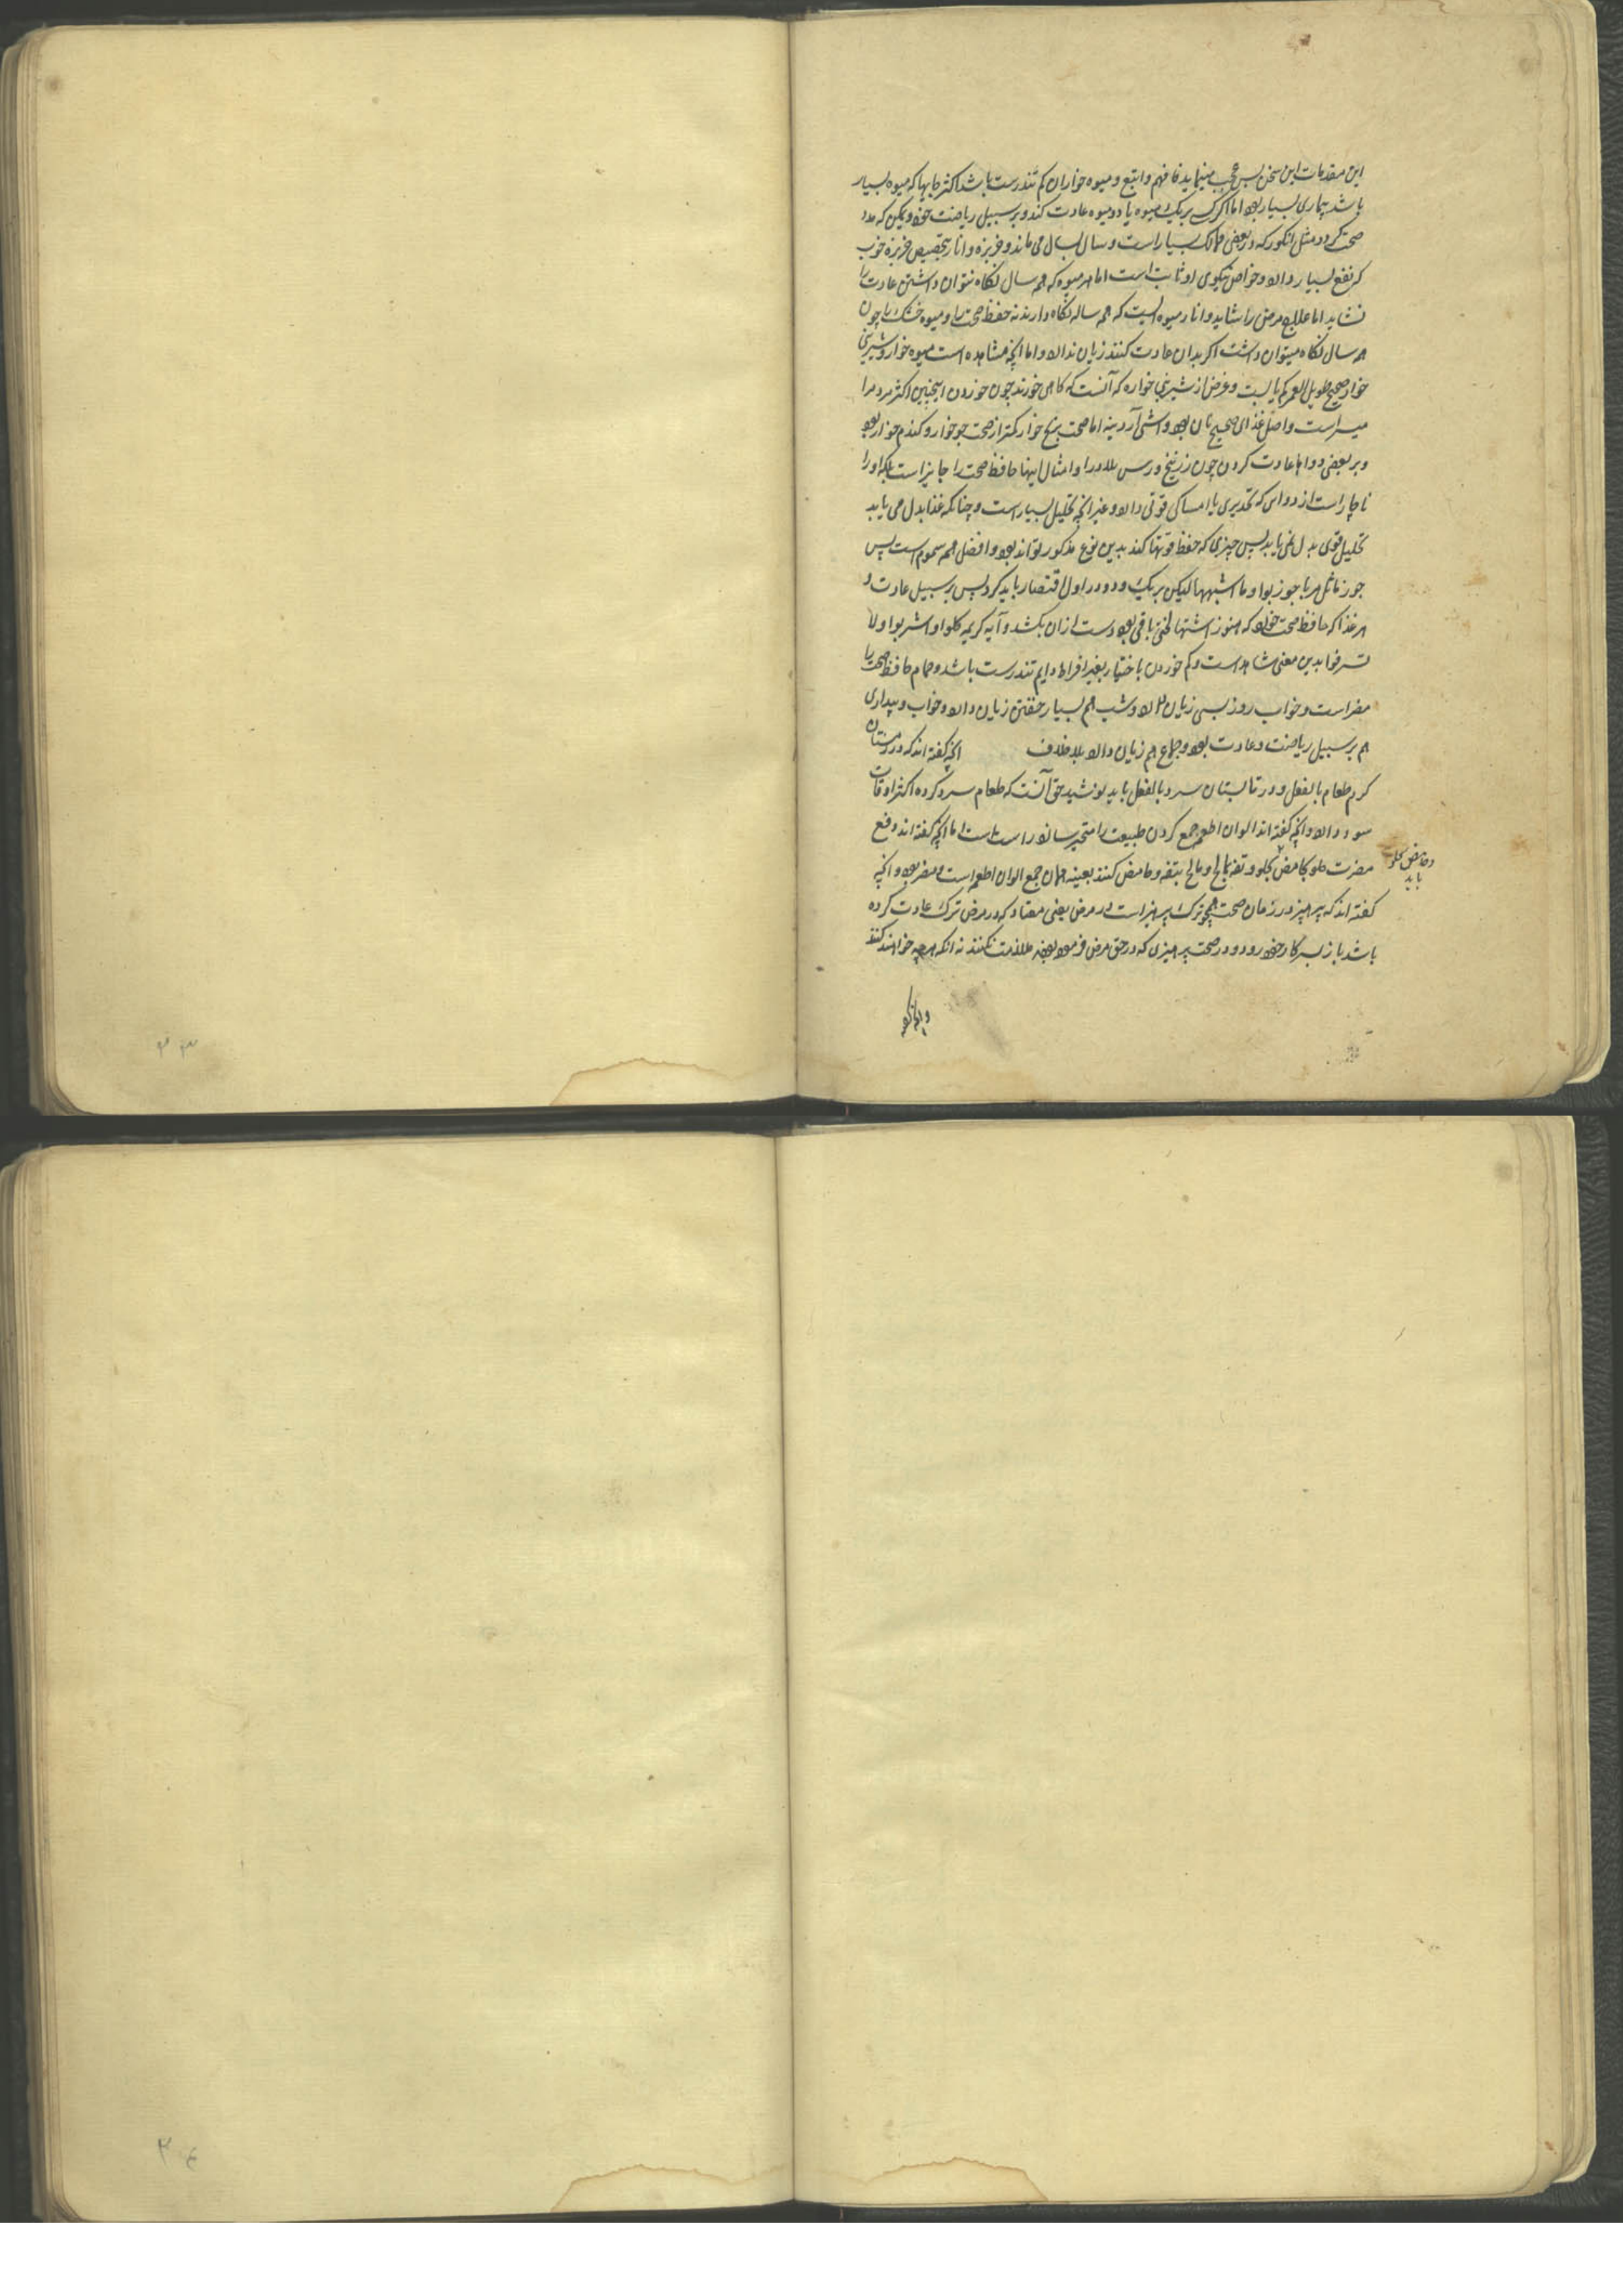 این مقدمات این سخن بس عجب مینماید فافهم واتبع و میوه خواران کم تندرست باشد اکثر جایها که میوه بسیار
باشد بیماری بسیار بود اما اگر کسی بر یک میوه یا دو میوه عادت کند و بر سبیل ریاضت خورد ممکن که مدد
صحت گردد مثل انگور که در بعضی ممالک بسیار است و سال بسال می ماند و خربزه و انار بتخصیص خربزه خوب
که نفع بسیار دارد و خواص نیکوی او ثابت است اما هر میوه که همه سال نگاه نتوان داشتن عادت را
نشاید اما علاج مرض را شاید و انار میوه ایست که همه ساله نگاه دارند نه حفظ صحت را و میوه خشک را چون
همه سال نگاه میتوان داشت اگر بدان عادت کنند زیان ندارد و اما آنچه مشاهده است میوه خوار و شیرینی
خوار صحیح طویل العمر کم یابست و غرض از شیرینی خواره که آنست که گاهی خورند چون خوردن اینچنین اکثر مردم را
میسر است و اصل غذای صحیح نان بود و آش آردینه اما صحت برنج خوار کمتر از صحت جو خوار و گندم خوار بود
و بر بعضی دواها عادت کردن چون زرنیخ و رس بلادر را و امثال اینها حافظ صحت را جایز است بلکه او را
ناچار است از دوای که تخدیری با امساکی قوتی دارد و غیر آنچه تحلیل بسیار است و چنانکه غذا بدل می یابد
تحلیل قوی بدل نمی یابد پس چیزی که حفظ قوتها کند بدین نوع مذکور تواند بود و افضل همه سموم است پس
جوز ماثل مر با جوز بوا و ما اشبهها لیکن بر یک و دو در اول اقتصار باید کرد پس بر سبیل عادت و
هر غذا که حافظ صحت خورد که هنوز اشتها لختی باقی بود دست از آن بکشد و آیه کریمه کلوا واشربوا ولا
تسرفوا بدین معنی شاهد است و کم خوردن باختیار بغیر افراط دایم تندرست باشد و حمام حافظ صحت را
مضر است و خواب روز بسی زیان دارد و شب هم بسیار خفتن زیان دارد و خواب و بیداری
هم بر سبیل ریاضت و عادت بود و جماع هم زیان دارد بلا خلاف آنچه گفته اند که در زمستان
گرم طعام بالفعل و در تابستان سرد بالفعل باید نوشید حق آنست که طعام سرد کرده اکثر اوقات
سود دارد و آنچه گفته اند الوان اطعمه جمع کردن طبیعت را متحیر سازد راست است اما آنچه گفته اند دفع
مضرت حلو بحامض و تفه بمالح و مالح بتفه و حامض کنند بعینه همان جمع الوان اطعمه است و مضر بود و آنچه
وحامض بحلو
باید
گفته اند که پرهیز در زمان صحت همچو ترک پرهیز است در مرض یعنی معتاد که در مرض ترک عادت کرده
باشد باز بسر کار خود رود و در صحت پرهیزی که در حق مرض فرموده بودند ملازمت نکنند نه آنکه هرچه خواهند کنند
۲۳
۲۴